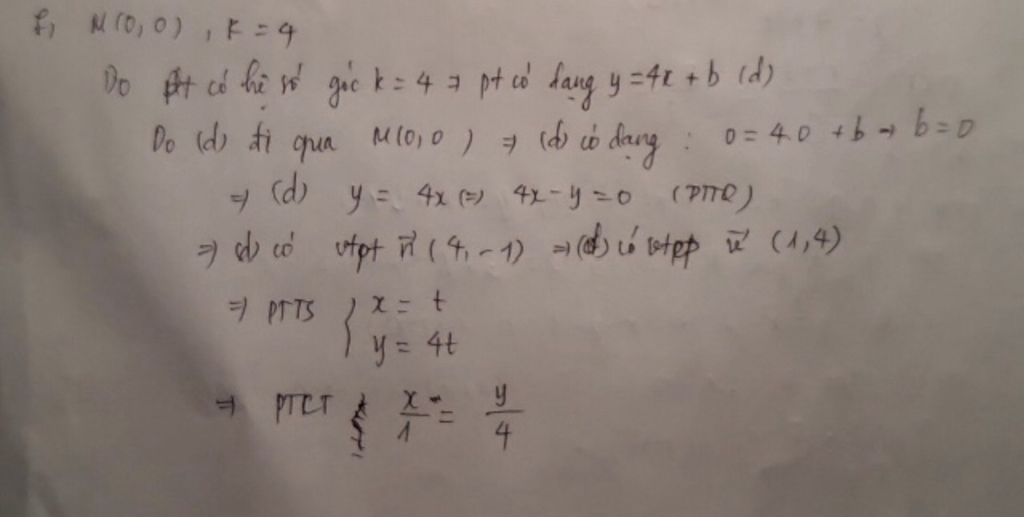 f, M(0,0), k = 4
Do pt có hệ số góc k = 4 ⇒ pt có dạng y = 4x + b (d)
Do (d) đi qua M(0,0) ⇒ (d) có dạng : 0 = 4.0 + b → b = 0
⇒ (d) y = 4x (=) 4x - y = 0 (PTTQ)
⇒ (d) có vtpt n⃗ (4, -1) ⇒ (d) có vtcp u⃗ (1,4)
⇒ PTTS { x = t
y = 4t
⇒ PTCT x/1 = y/4